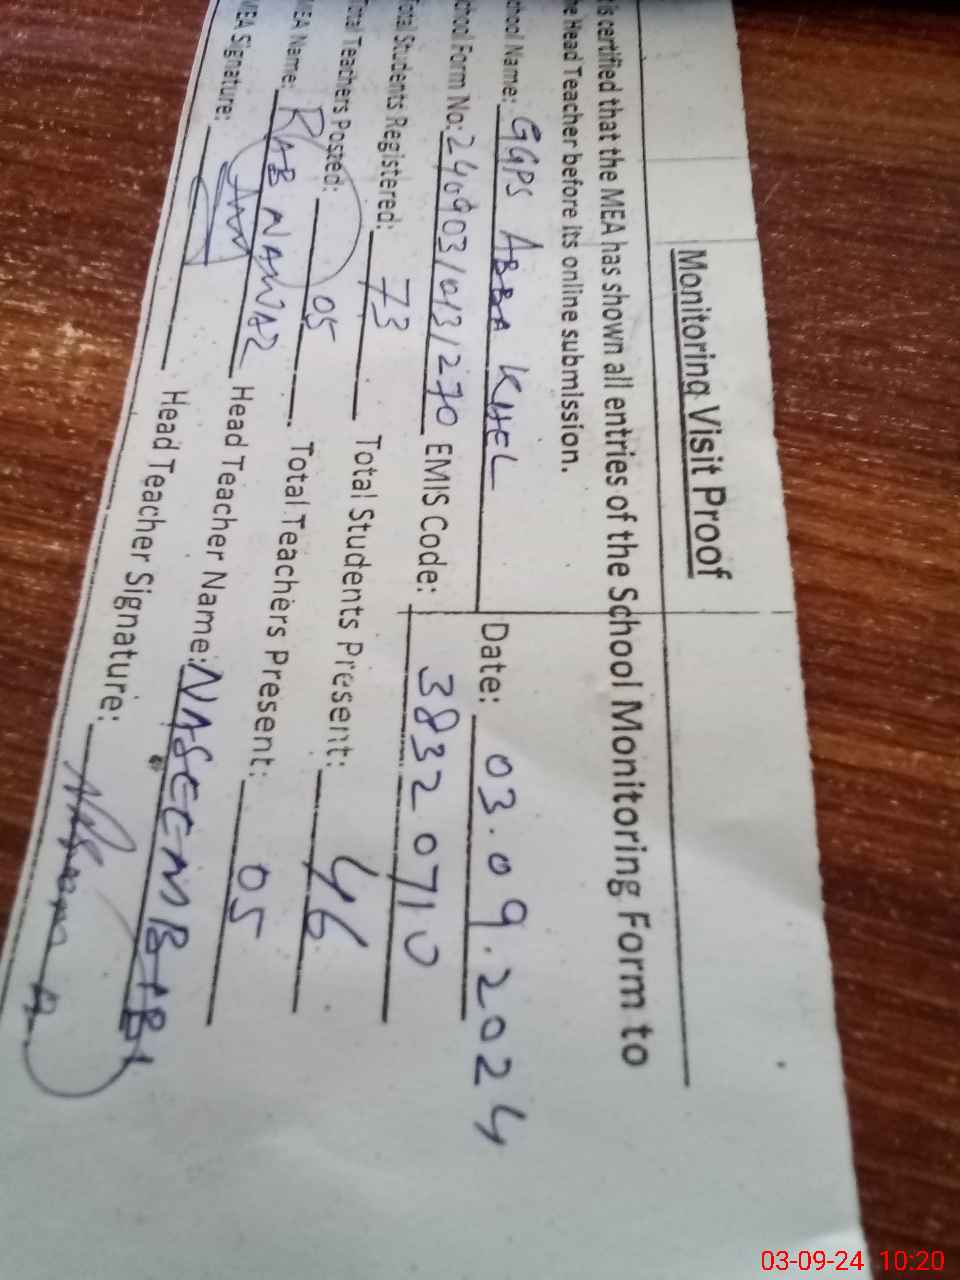 Monitoring Visit Proof
is certified that the MEA has shown all entries of the School Monitoring Form to
he Head Teacher before its online submission.
chool Name: GGPS ABBA KHEL Date: 03.09.2024
chool Form No: 240903/013/270 EMIS Code: 38320710
otal Students Registered: 73 Total Students Present: 46
Total Teachers Posted: 05 Total Teachers Present: 05
MEA Name: RAB NAWAZ Head Teacher Name: NASEEM BIBI
MEA Signature: Head Teacher Signature:
03-09-24 10:20